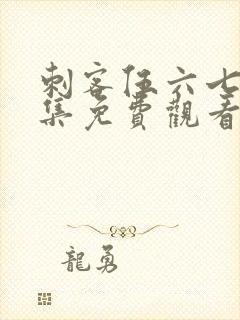 刺客伍六七
集免費觀看
龍勇